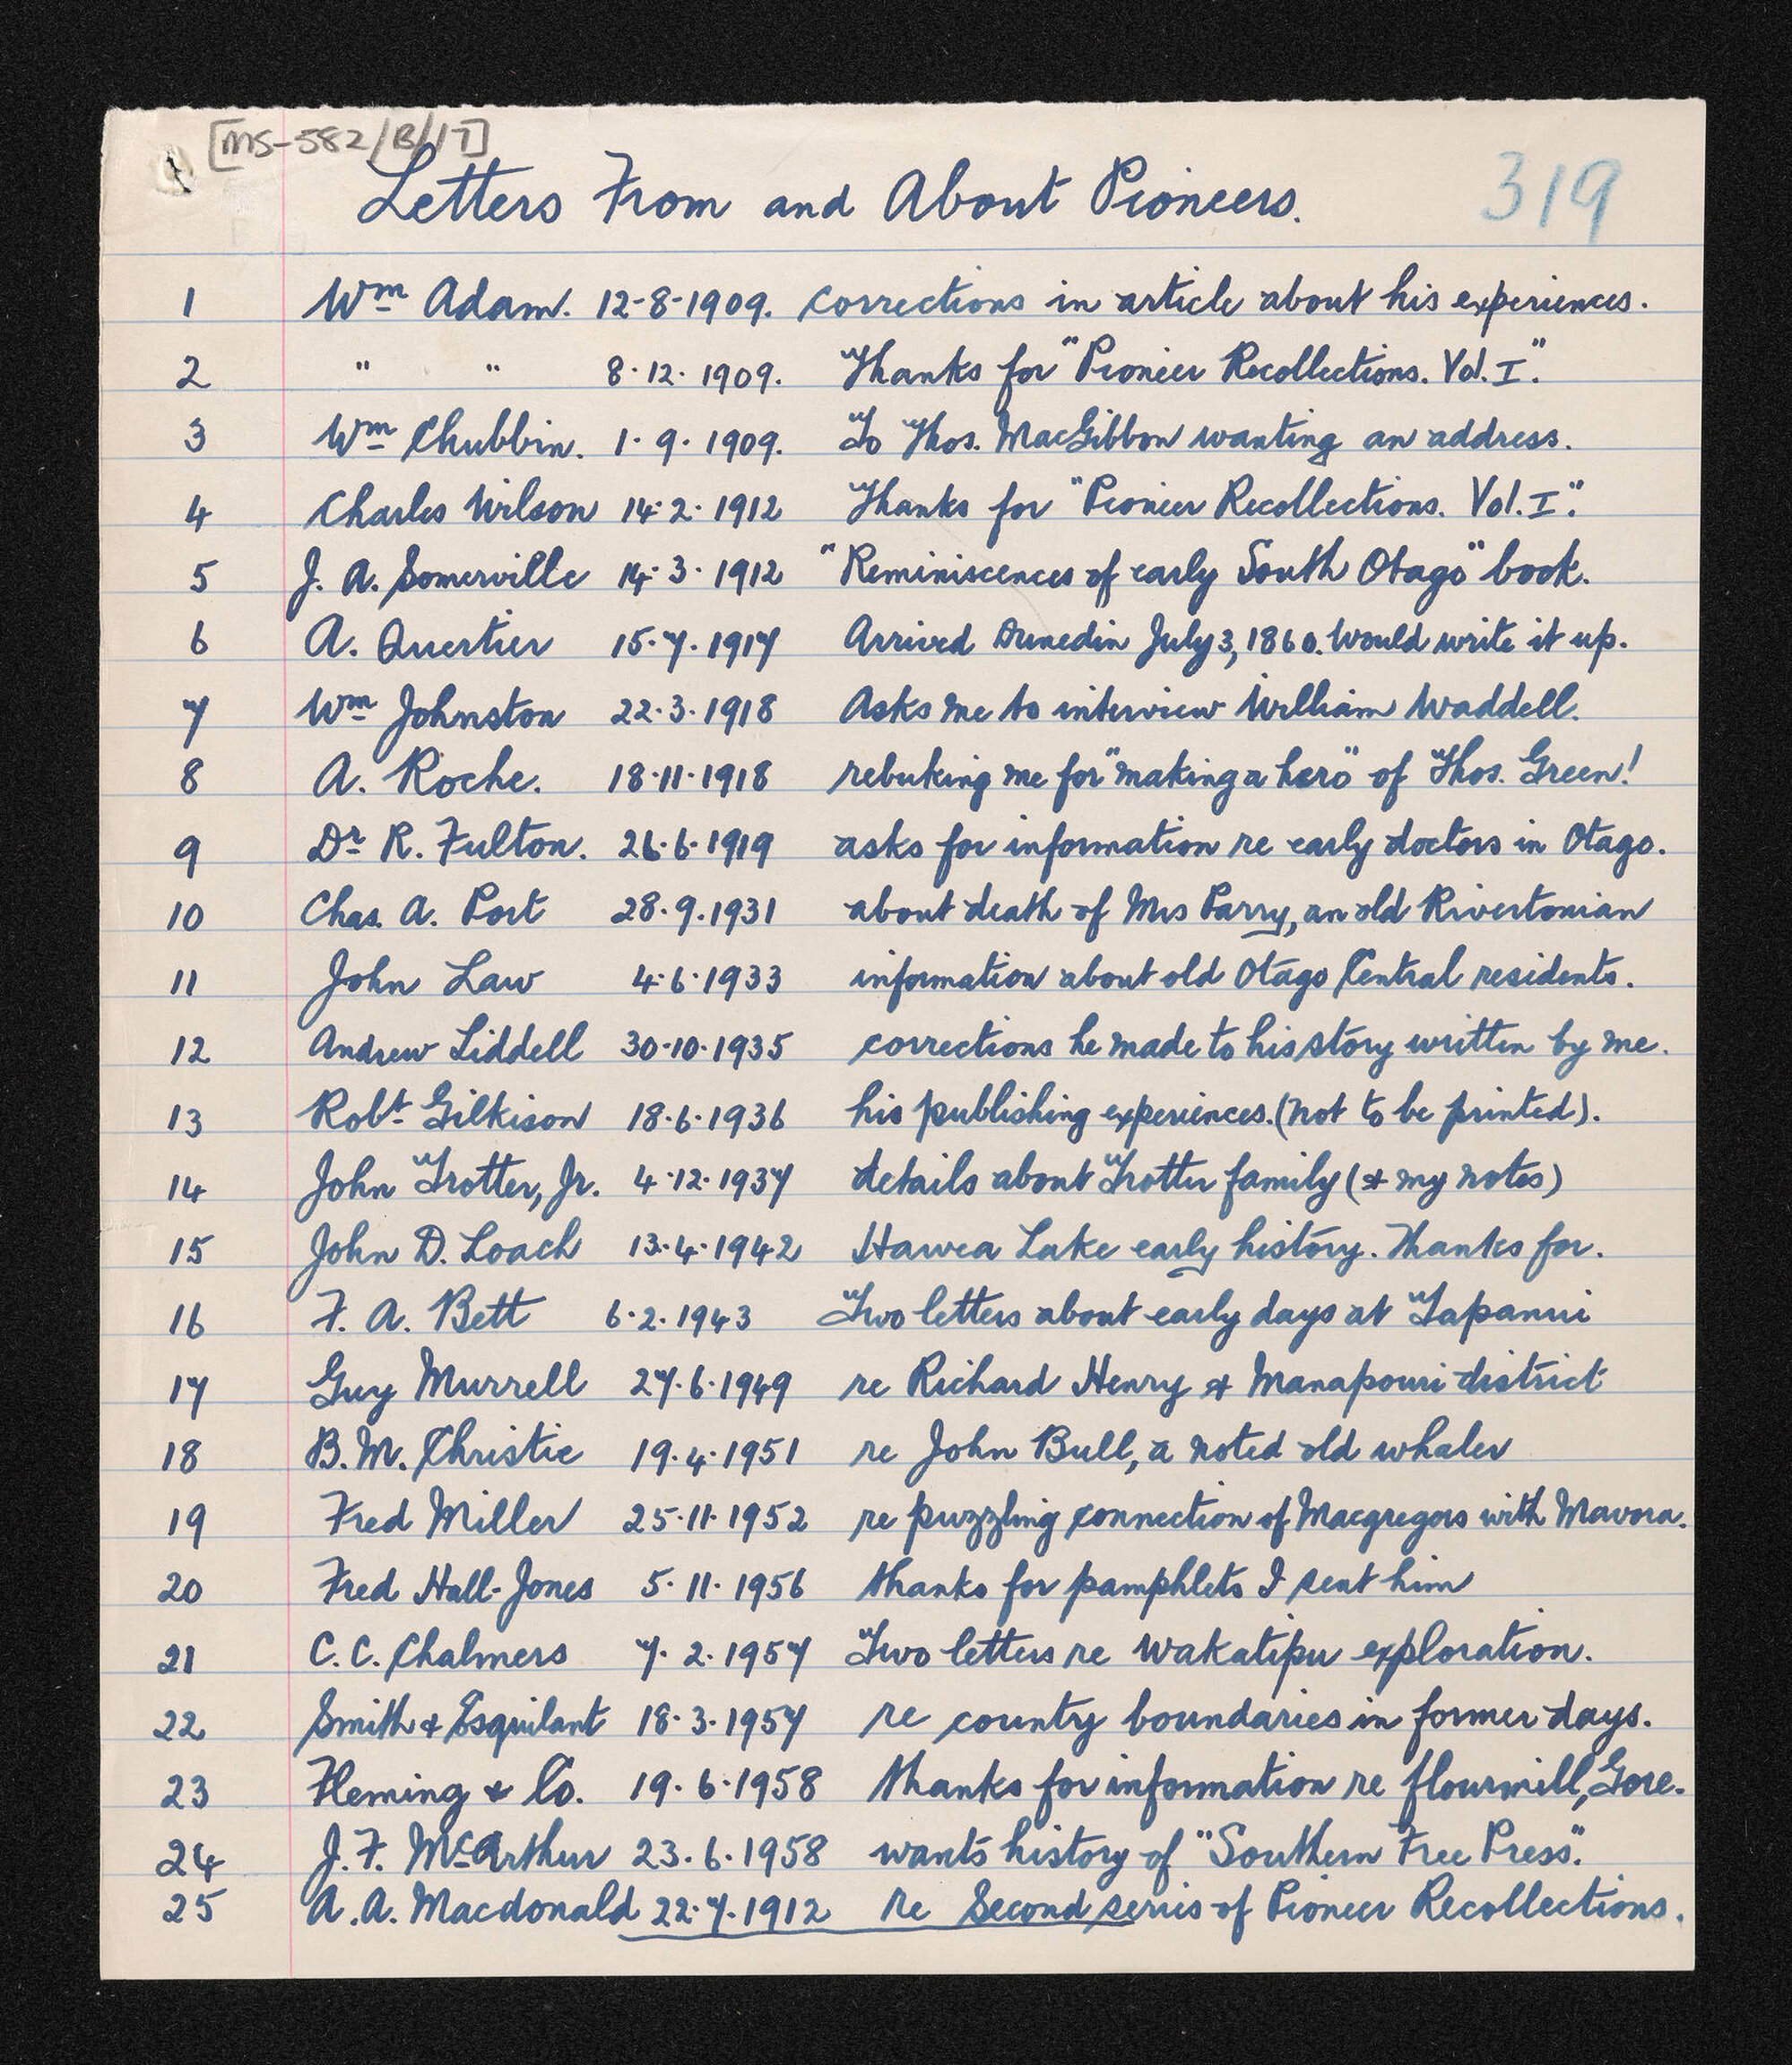 [MS-582/B/17]
Letters From and About Pioneers.
319
1 Wm Adam. 12-8-1909. corrections in article about his experiences.
2 " " 8.12.1909. Thanks for "Pioneer Recollections. Vol. I".
3 Wm Chubbin. 1.9.1909. To Thos. MacGibbon wanting an address.
4 Charles Wilson 14.2.1912 Thanks for "Pioneer Recollections. Vol. I".
5 J. A. Somerville 14.3.1912 "Reminiscences of early South Otago" book.
6 A. Quertier 15.7.1917 Arrived Dunedin July 3, 1860. Would write it up.
7 Wm Johnston 22.3.1918 Asks me to interview William Waddell.
8 A. Roche. 18.11.1918 rebuking me for "making a hero" of Thos. Green!
9 Dr R. Fulton. 26.6.1919 asks for information re early doctors in Otago.
10 Chas. A. Port 28.9.1931 about death of Mrs Parry, an old Rivertonian
11 John Law 4.6.1933 information about old Otago Central residents.
12 Andrew Liddell 30.10.1935 corrections he made to his story written by me.
13 Robt Gilkison 18.6.1936 his publishing experiences. (not to be printed).
14 John Trotter, Jr. 4.12.1937 details about Trotter family (& my notes)
15 John D. Loach 13.4.1942 Hawea Lake early history. Thanks for.
16 F. A. Bett 6.2.1943 Two letters about early days at Tapanui
17 Guy Murrell 27.6.1949 re Richard Henry & Manapouri district
18 B. M. Christie 19.4.1951 re John Bull, a noted old whaler
19 Fred Miller 25.11.1952 re puzzling connection of Macgregors with Mavora.
20 Fred Hall-Jones 5.11.1956 thanks for pamphlets I sent him
21 C. C. Chalmers 7.2.1957 Two letters re Wakatipu exploration.
22 Smith & Esquilant 18.3.1957 re country boundaries in former days.
23 Fleming & Co. 19.6.1958 thanks for information re flourmill, Gore.
24 J. F. McArthur 23.6.1958 wants history of "Southern Free Press".
25 A. A. Macdonald 22.7.1912 re Second series of Pioneer Recollections.